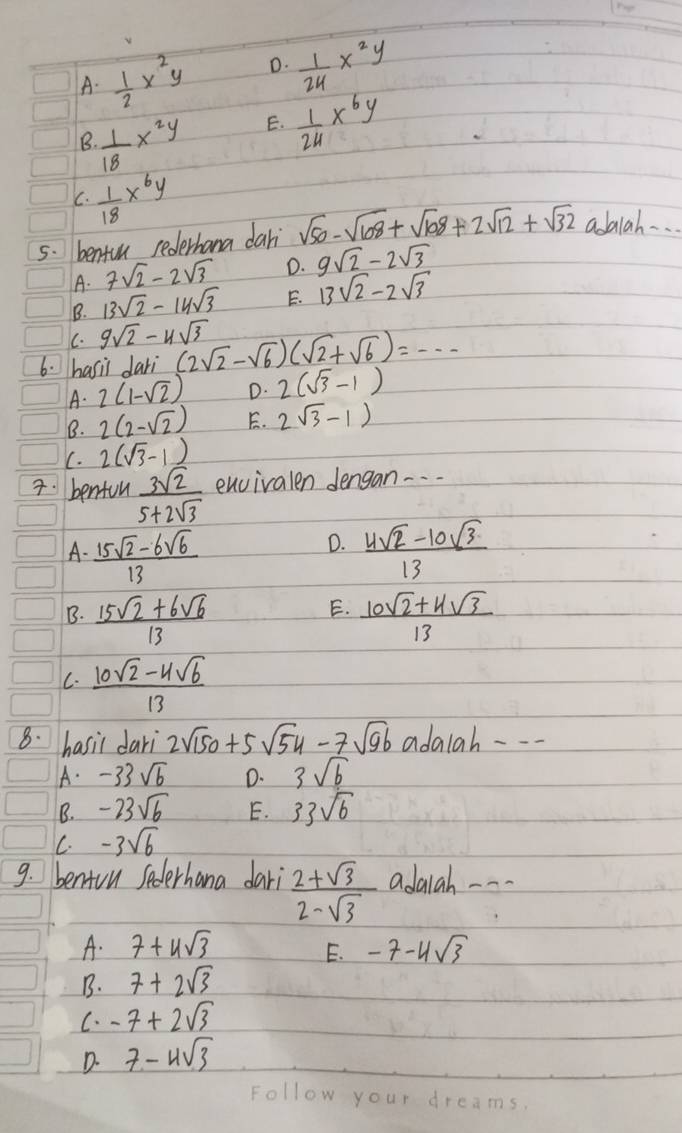 A. 1/2 x²y D. 1/24 x²y
B. 1/18 x²y E. 1/24 x⁶y
C. 1/18 x⁶y
5. bentuk sederhana dari √50 - √108 + √108 + 2√12 + √32 adalah ---
A. 7√2 - 2√3 D. 9√2 - 2√3
B. 13√2 - 14√3 E. 13√2 - 2√3
C. 9√2 - 4√3
6. hasil dari (2√2 - √6)(√2 + √6) = ---
A. 2(1-√2) D. 2(√3 - 1)
B. 2(2-√2) E. 2√3 - 1)
C. 2(√3 - 1)
7. bentuk 3√2 / 5+2√3 ekuivalen dengan ---
A. 15√2 - 6√6 / 13 D. 4√2 - 10√3 / 13
B. 15√2 + 6√6 / 13 E. 10√2 + 4√3 / 13
C. 10√2 - 4√6 / 13
8. hasil dari 2√150 + 5√54 - 7√96 adalah ---
A. -33√6 D. 3√6
B. -23√6 E. 33√6
C. -3√6
9. bentuk sederhana dari 2+√3 / 2-√3 adalah ---
A. 7 + 4√3 E. -7 - 4√3
B. 7 + 2√3
C. -7 + 2√3
D. 7 - 4√3
Follow your dreams.